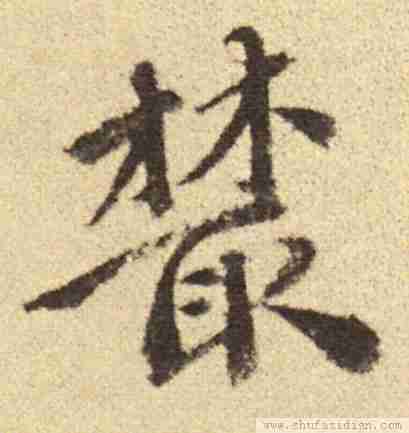 叢
www.shufazidian.com